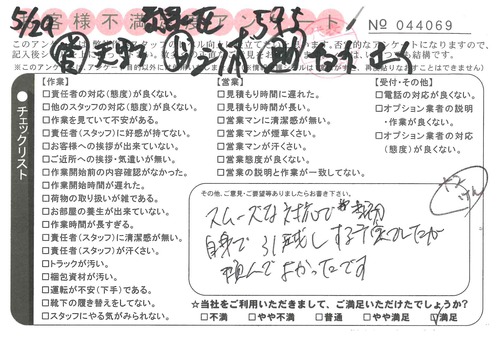 5/29
お客様不満足度アンケート
No 044069
【作業】
□責任者の対応(態度)が良くない。
□他のスタッフの対応(態度)が良くない。
□作業を見ていて不安がある。
□責任者(スタッフ)に好感が持てない。
□お客様への挨拶が出来ていない。
□ご近所への挨拶・気遣いが無い。
□作業開始前の内容確認がなかった。
□作業開始時間が遅れた。
□荷物の取り扱いが雑である。
□お部屋の養生が出来ていない。
□作業時間が長すぎる。
□責任者(スタッフ)に清潔感が無い。
□責任者(スタッフ)が汗くさい。
□トラックが汚い。
□梱包資材が汚い。
□運転が不安(下手)である。
□靴下の履き替えをしてない。
□スタッフにやる気がみられない。
【営業】
□見積もり時間に遅れた。
□見積もり時間が長い。
□営業マンに清潔感が無い。
□営業マンが煙草くさい。
□営業マンが汗くさい。
□営業態度が良くない。
□営業の説明と作業が一致してない。
【受付・その他】
□電話の対応が良くない。
□オプション業者の説明
・作業が良くない。
□オプション業者の対応
(態度)が良くない。
チェックリスト
その他、ご意見・ご要望等ありましたらお書き下さい。
スムーズな対応で
自身で引越しする予定でしたが
頼んでよかったです
☆当社をご利用いただきまして、ご満足いただけたでしょうか?
□不満 □やや不満 □普通 □やや満足 □満足